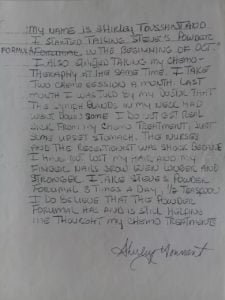 "MY NAME IS SHIRLEY TOUSSAINT AND
I STARTED TAKING STEVE'S POWDER
FORMULA IN THE BEGINNING OF OCT."
I ALSO STARTED TAKING MY CHEMO-
THERAPHY AT THE SAME TIME. I TAKE
TWO CHEMO SESSION A MONTH. LAST
MONTH I WAS TOLD BY MY DOCTOR THAT
THE LYMPH GLANDS IN MY NECK HAD
WENT DOWN SOME I DO NOT GET REAL
SICK FROM MY CHEMO TREATMENT, JUST
SOME UPSET STOMACH. THE NURSES
AND THE RECEPTIONIST WAS SHOCK BECAUSE
I HAVE NOT LOST MY HAIR, AND MY
FINGER NAILS GROW EVEN LONGER AND
STRONGER. I TAKE STEVE'S POWDER
FORUMAL 3 TIMES A DAY, 1/2 TEASPOON
I DO BELIEVE THAT THIS POWDER
FORUMAL HAS AND IS STILL HELPING
ME THOUGHT MY CHEMO TREATMENTS
Shirley Toussaint